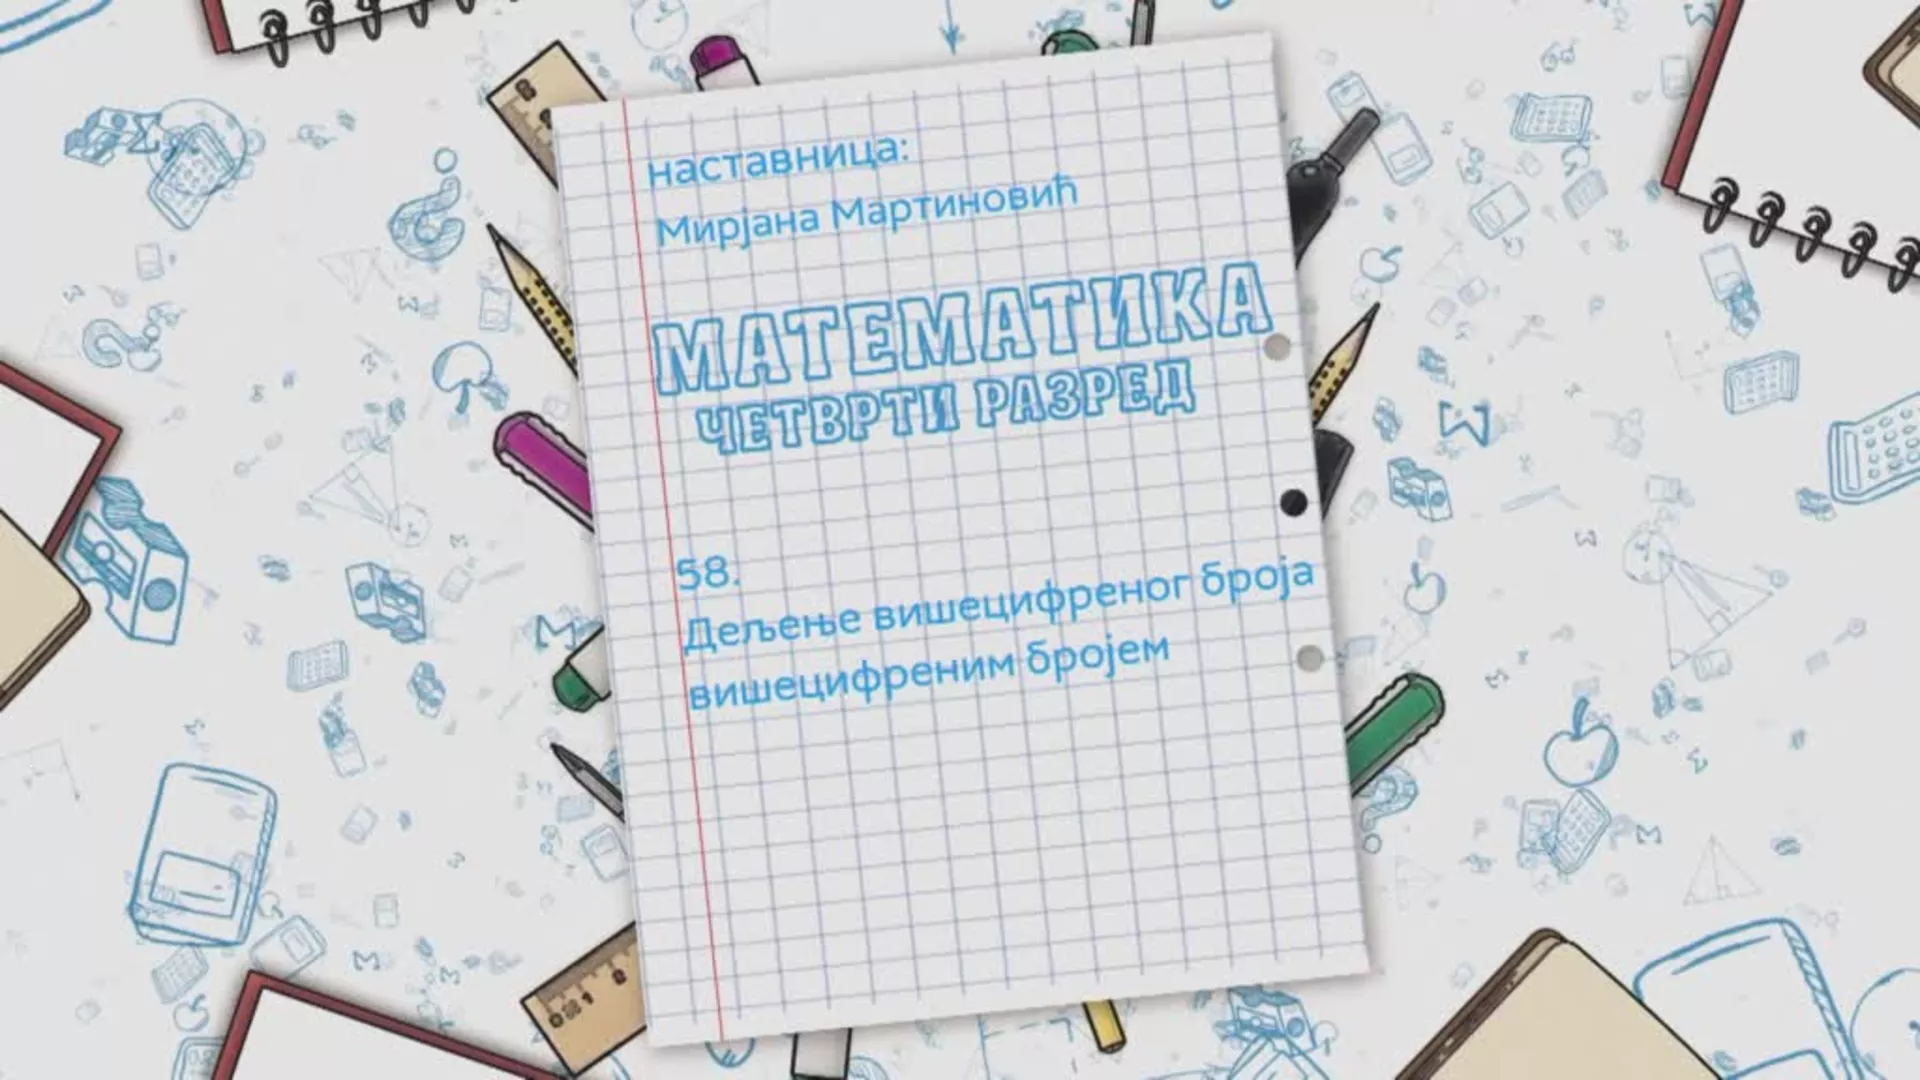 наставница:
Мирјана Мартиновић
МАТЕМАТИКА
ЧЕТВРТИ РАЗРЕД
58.
Дељење вишецифреног броја
вишецифреним бројем